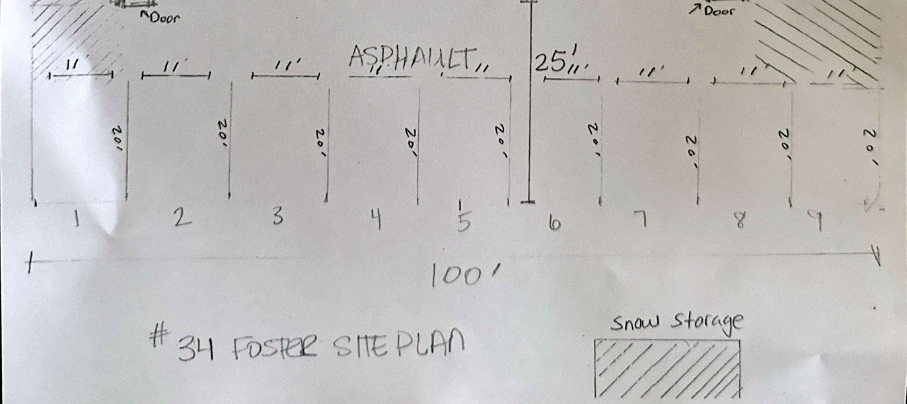 Door
Door
ASPHAULT
25'
11' 11' 11' 11' 11' 11' 11' 11' 11'
20' 20' 20' 20' 20' 20' 20' 20' 20'
1 2 3 4 5 6 7 8 9
100'
# 34 FOSTER SITE PLAN
Snow Storage